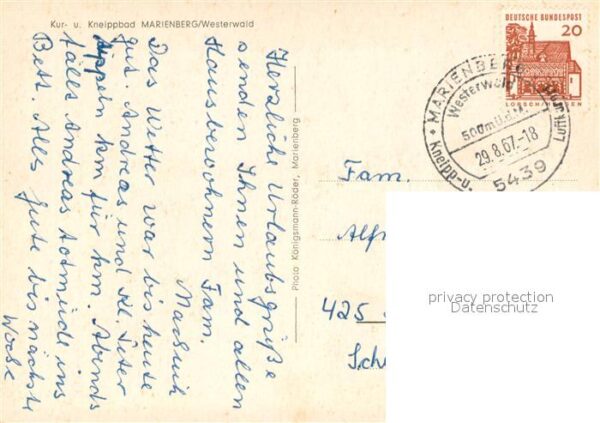 Kur- u. Kneippbad MARIENBERG/Westerwald
Herzliche Urlaubsgrüße
senden Ihnen und allen
Hausbewohnern Fam.
Das Wetter war bis heute
gut. Andreas und Kl. Peter
tippeln km für km. Abends
fällt Andreas totmüde ins
Bett. Alles Gute bis nächste
Woche
Photo Königsmann-Röder, Marienberg
DEUTSCHE BUNDESPOST
20
LORSCH/HESSEN
MARIENBERG
Westerwald
500m ü.d.M.
29.8.67-18
5439
Kneipp-u.
Luftkurort
Fam.
Alf
425
Sch
privacy protection
Datenschutz